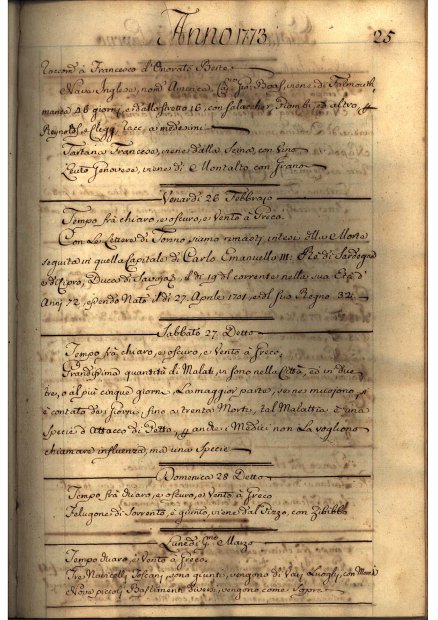 Anno 1773. 25
Raccom. à Francesco d'Onorato Berte
Nave Inglese, nom. America, Cap. Gio: Boaf, viene di Falmouth
manca 46 giorni, e dallo stretto 16, con Salacche, Piombi, ed altro, p
Reynolds, e Clegg, racc. a medesimi
Tartana Francese, viene dalla Seina, con Vino
Leuto Genovese, viene di Montalto, con Grano
Venerdì 26 Febbraio
Tempo frà chiaro, e oscuro, e Vento à Greco.
Con Le Lettere di Torino siamo rimasti intesi della Morte
seguita in quella Capitale di Carlo Emanuelle III: Rè di Sardegna
di Cipro, Duca di Savoja, il dì 19 del corrente nella sua Età d'
Anni 72, essendo Nato il dì 27 Aprile 1701, e del suo Regno 32:
Sabbato 27 Detto
Tempo frà chiaro, e oscuro, e Vento à Greco.
Grandissima quantità di Malati, vi sono nella Città, ed in due
tre, o al più cinque giorni, La maggior parte, se ne muojono, si
è contato dei giorni fino a trenta Morti, tal Malattia è una
Specie d'Attacco di Petto, p anche i Medici non La vogliono
chiamare influenza, ma una Specie
Domenica 28 Detto
Tempo frà chiaro, e oscuro, e Vento à Greco
Felugone di Sorrento, è giunto, viene dal Pizzo, con Zibibbo
Lunedì pmo Marzo
Tempo chiaro, e Vento à Greco.
Tre Navicelli Toscani, sono giunti, vengono di Varj Luoghi, con
Nove piccoli Bastimenti diversi, vengono come Sopra